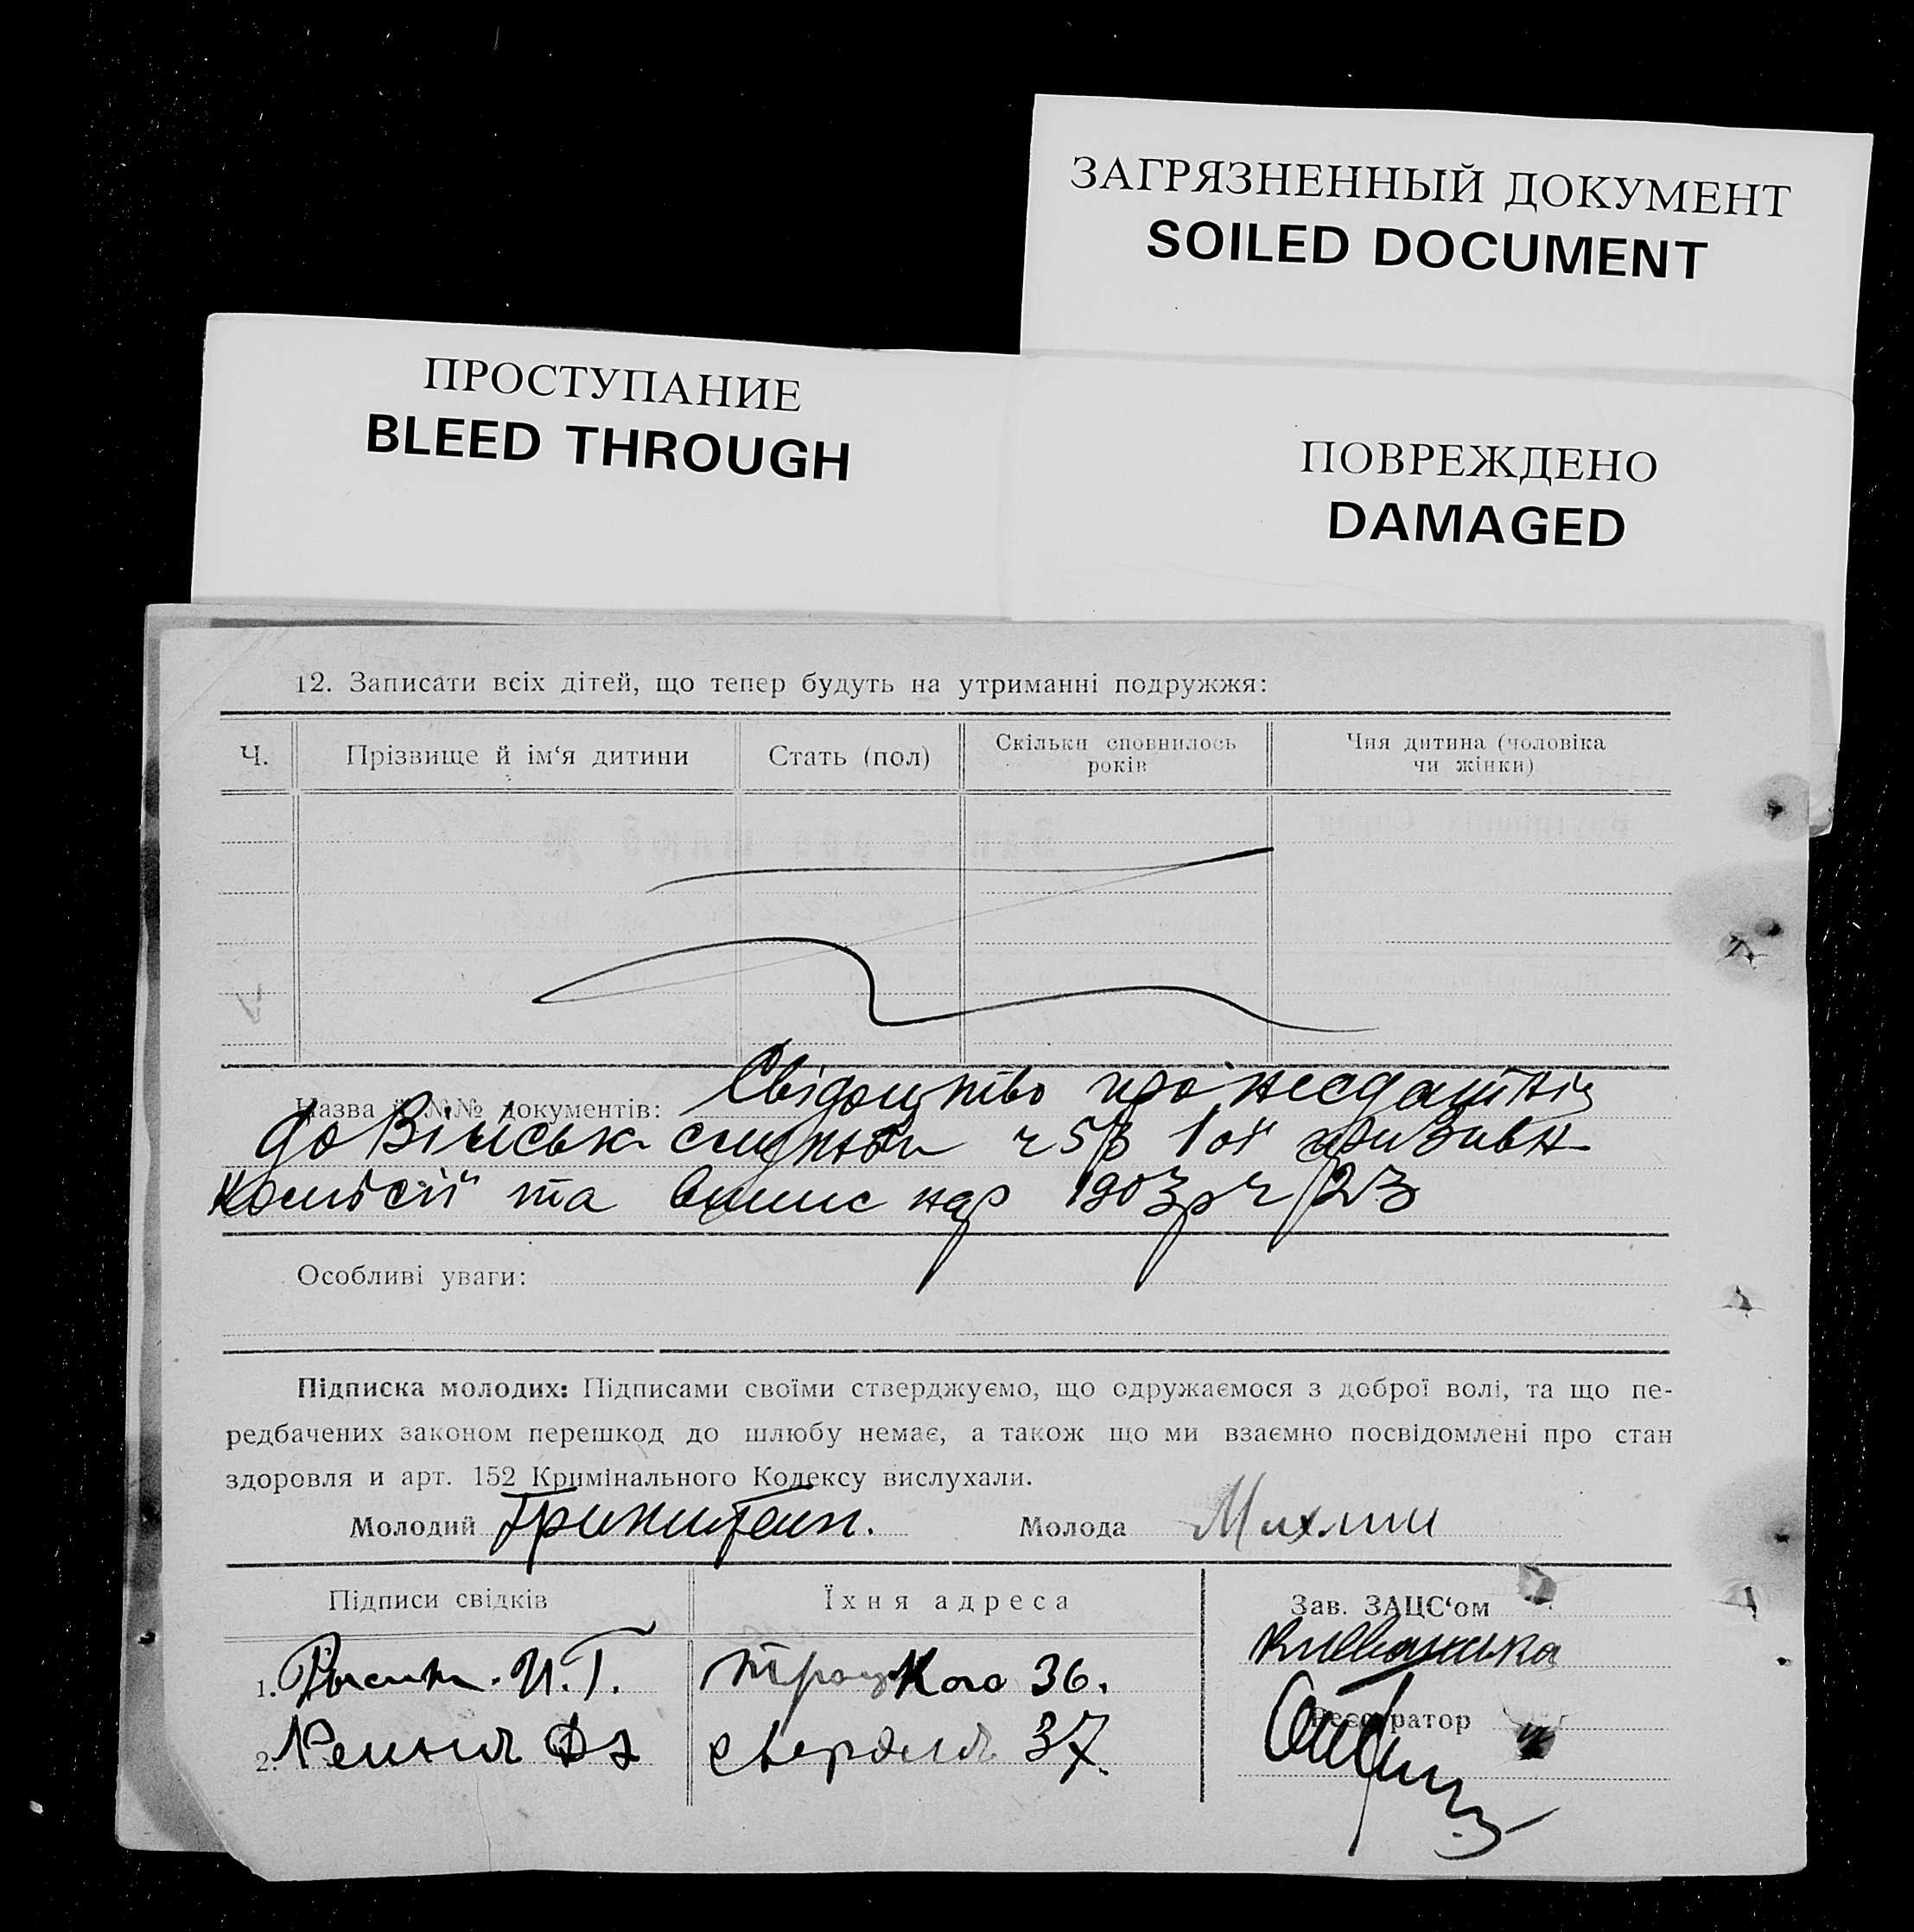 ЗАГРЯЗНЕННЫЙ ДОКУМЕНТ
SOILED DOCUMENT
ПРОСТУПАНИЕ
BLEED THROUGH
ПОВРЕЖДЕНО
DAMAGED
12. Записати всіх дітей, що тепер будуть на утриманні подружжя:
Ч. Прізвище й ім‘я дитини Стать (пол) Скільки сповнилось років Чия дитина (чоловіка чи жінки)
Назва й №№ документів: Свідоцтво про нездатність
до Військ службы ч 58 1ої призивн
комісії та випис нар 1903 р ч 123
Особливі уваги:
Підписка молодих: Підписами своїми стверджуємо, що одружаємося з доброї волі, та що пе-
редбачених законом перешкод до шлюбу немає, а також що ми взаємно посвідомлені про стан
здоровля и арт. 152 Кримінального Кодексу вислухали.
Молодий Гринштейн. Молода Михлин
Підписи свідків Їхня адреса Зав. ЗАЦС‘ом
1. И.Г. Троцкого 36.
2. 37.
Реєстратор